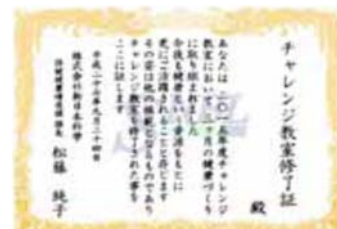 チャレンジ教室修了証
殿
あなたは二〇一五年度チャレンジ
教室において三ヶ月の健康づくり
に取り組まれました
今後も健康という資源をもとに
更にご活躍されることと存じます
その姿は他の模範となるものであり
チャレンジ教室を修了された事を
ここに証します
平成二十七年九月二十四日
株式会社新日本科学
松藤 純子